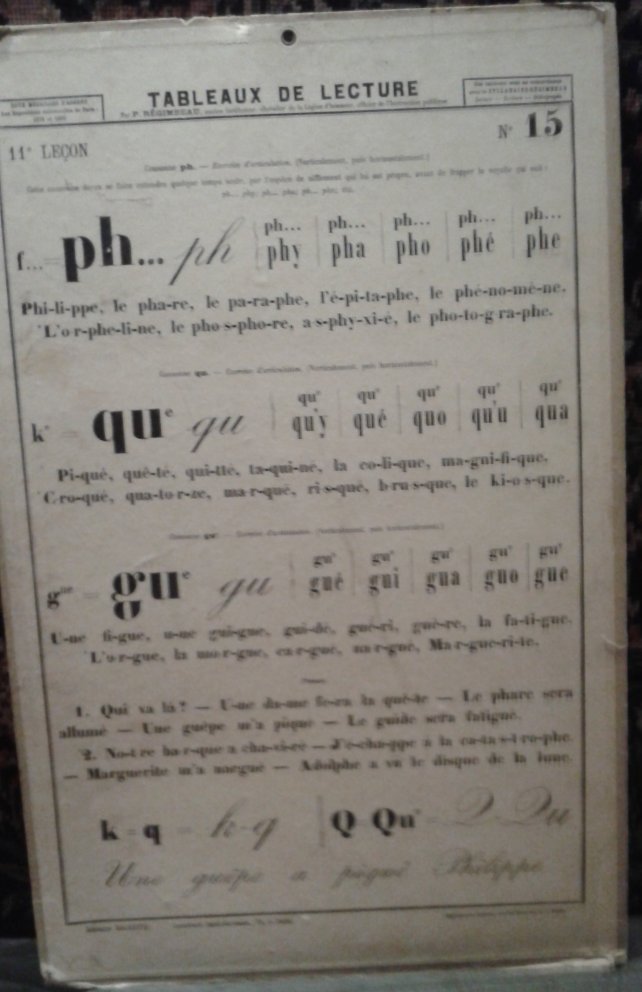 TABLEAUX DE LECTURE
Par P. RÉGIMBEAU,
11e LEÇON
No 15
Consonne ph. — Exercice d'articulation. (Verticalement, puis horizontalement.)
f... = ph... ph
ph... ph... ph... ph... ph...
phy pha pho phé phe
Phi-li-ppe, le pha-re, le pa-ra-phe, l'é-pi-ta-phe, le phé-no-mè-ne.
L'o-r-phe-li-ne, le pho-s-pho-re, a-s-phy-xi-é, le pho-to-g-ra-phe.
Consonne qu. — Exercice d'articulation. (Verticalement, puis horizontalement.)
ke = que qu
que que que que que
qu'y qué quo qu'u qua
Pi-qué, quê-té, qui-tté, ta-qui-né, la co-li-que, ma-gni-fi-que.
Cro-qué, qua-to-r-ze, ma-r-qué, ri-s-qué, b-ru-s-que, le ki-o-s-que.
Consonne gu. — Exercice d'articulation. (Verticalement, puis horizontalement.)
gue = gue gu
gue gue gue gue gue
gué gui gua guo gue
U-ne fi-gue, u-ne gui-gue, gui-de, gué-ri, guè-re, la fa-ti-gue.
L'o-r-gue, la mo-r-gue, ca-r-gue, na-r-gue, Ma-r-gue-ri-te.
1. Qui va là? — U-ne da-me fe-ra la quê-te — Le phare sera
allumé — Une guêpe m'a piqué — Le guide sera fatigué.
2. No-t-re ba-r-que a cha-vi-ré — J'é-cha-ppe à la ca-ta-s-t-ro-phe
— Marguerite m'a nargué — Adolphe a vu le disque de la lune.
k = q = k = q Q Que = Q Qu
Une guêpe a piqué Philippe